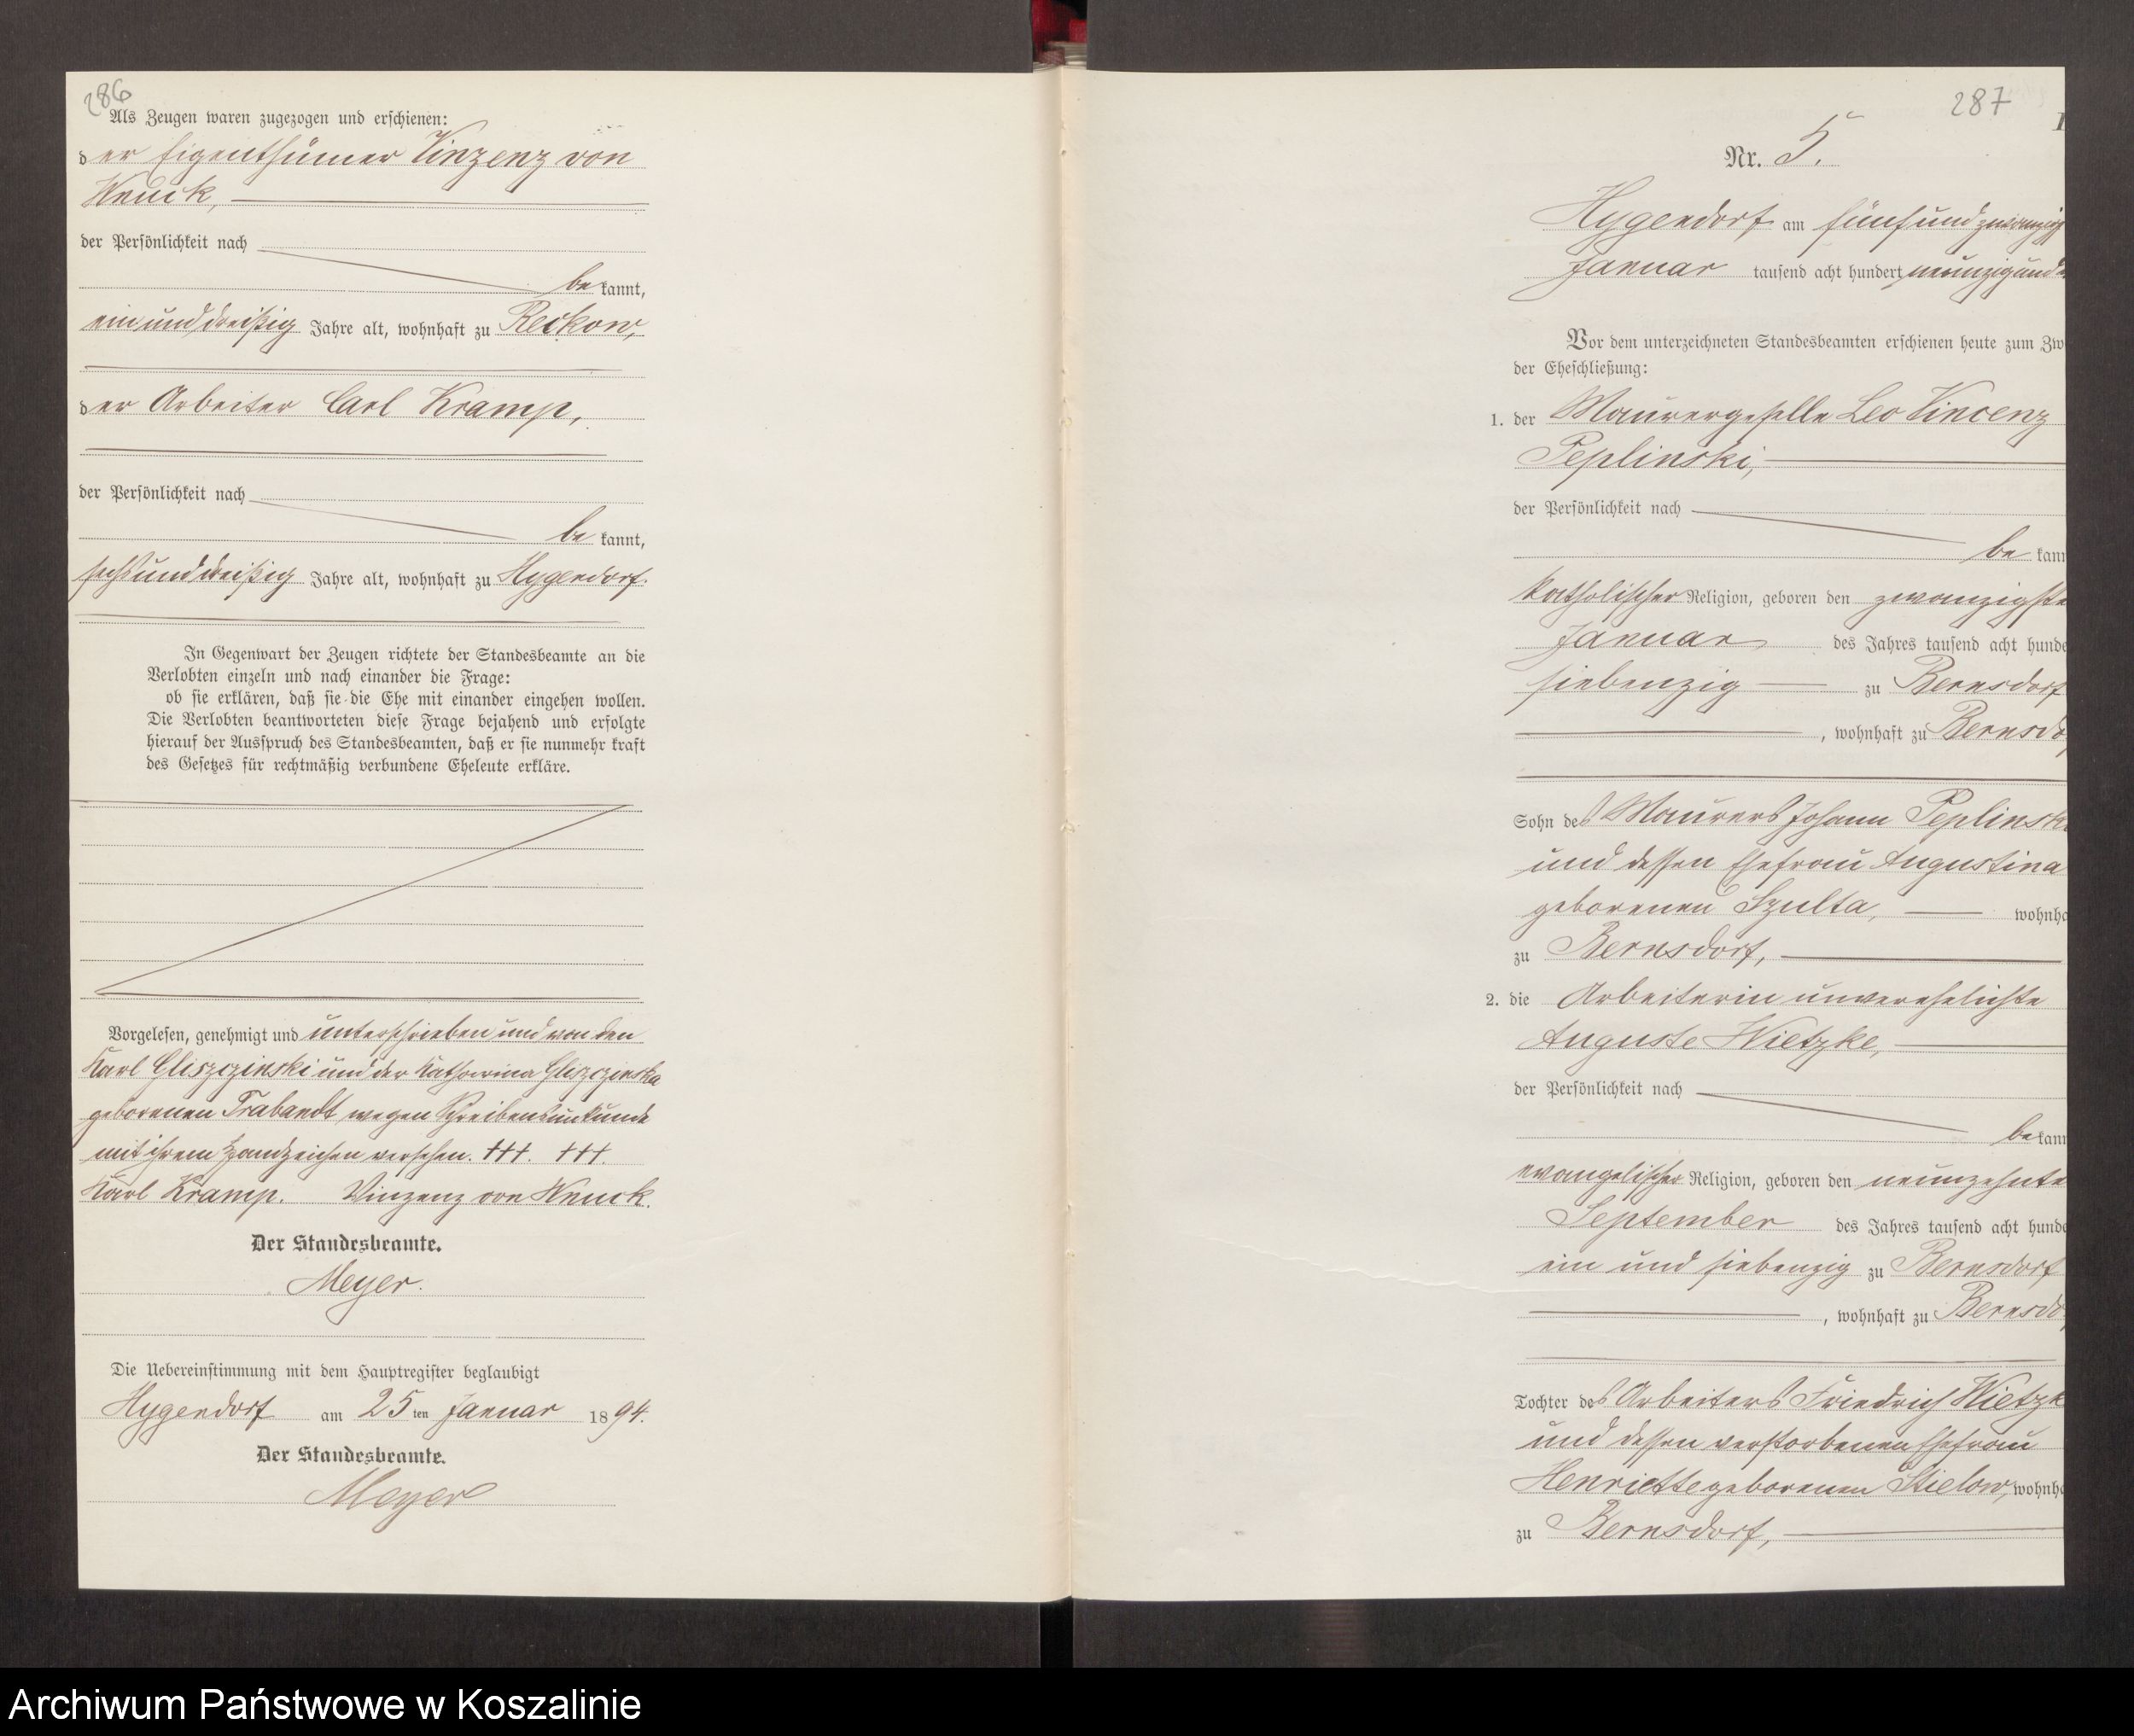 286
Als Zeugen waren zugezogen und erschienen:
der Eigenthümer Vinzenz von
Wnuck,
der Persönlichkeit nach
be kannt,
einunddreißig Jahre alt, wohnhaft zu Reckow,
der Arbeiter Carl Kramp,
der Persönlichkeit nach
be kannt,
sechsunddreißig Jahre alt, wohnhaft zu Hygendorf.
In Gegenwart der Zeugen richtete der Standesbeamte an die
Verlobten einzeln und nach einander die Frage:
ob sie erklären, daß sie die Ehe mit einander eingehen wollen.
Die Verlobten beantworteten diese Frage bejahend und erfolgte
hierauf der Ausspruch des Standesbeamten, daß er sie nunmehr kraft
des Gesetzes für rechtmäßig verbundene Eheleute erkläre.
Vorgelesen, genehmigt und unterschrieben und von den
Karl Gliszczinski und der Katharina Gliszczinska
geborenen Trabandt wegen Schreibensunkunde
mit ihrem Handzeichen versehen. +++. +++.
Karl Kramp. Vinzenz von Wnuck.
Der Standesbeamte.
Meyer.
Die Uebereinstimmung mit dem Hauptregister beglaubigt
Hygendorf am 25 ten Januar 1894.
Der Standesbeamte.
Meyer
287
Nr. 5.
Hygendorf am fünfundzwanzig
Januar tausend acht hundert neunzig und
Vor dem unterzeichneten Standesbeamten erschienen heute zum Zw
der Eheschließung:
1. der Maurergeselle Leo Vincenz
Peplinski,
der Persönlichkeit nach
be kann
katholischer Religion, geboren den zwanzigste
Januar des Jahres tausend acht hunde
siebenzig zu Bernsdorf
, wohnhaft zu Bernsdo
Sohn des Maurers Johann Peplinsk
und dessen Ehefrau Augustina
geborenen Szulta, wohnha
zu Bernsdorf,
2. die Arbeiterin unverehelichte
Auguste Wietzke,
der Persönlichkeit nach
be kann
evangelischer Religion, geboren den neunzehnte
September des Jahres tausend acht hunde
ein und siebenzig zu Bernsdorf
, wohnhaft zu Bernsdo
Tochter des Arbeiters Friedrich Wietzk
und dessen verstorbenen Ehefrau
Henriette geborenen Stielow, wohnha
zu Bernsdorf,
Archiwum Państwowe w Koszalinie